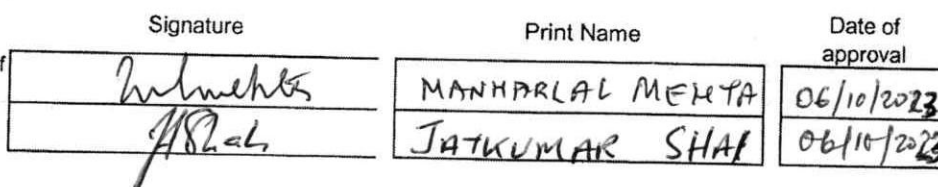 Signature Print Name Date of approval
f MANHARLAL MEHTA 06/10/2023
JATKUMAR SHAH 06/10/2023